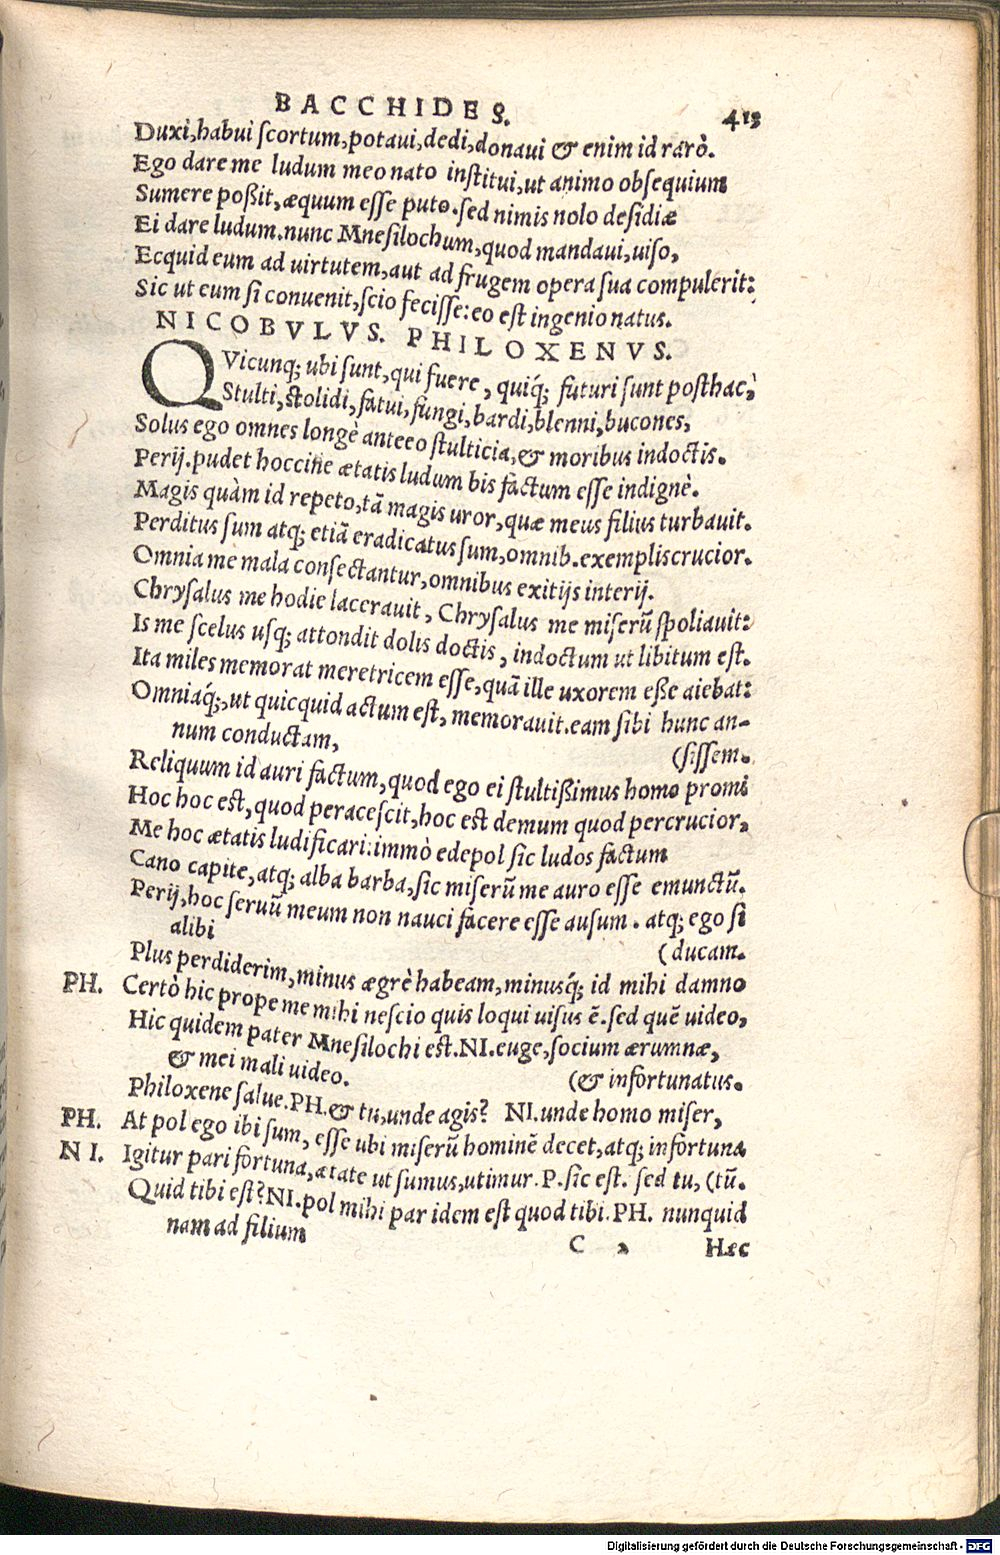 BACCHIDES.
413
Duxi, habui scortum, potaui, dedi, donaui & enim id rarò.
Ego dare me ludum meo nato institui, ut animo obsequium
Sumere poßit, æquum esse puto. sed nimis nolo desidiæ
Ei dare ludum. nunc Mnesilochum, quod mandaui, uiso,
Ecquid eum ad uirtutem, aut ad frugem opera sua compulerit:
Sic ut eum si conuenit, scio fecisse: eo est ingenio natus.
NICOBVLVS. PHILOXENVS.
QVicunq; ubi sunt, qui fuere, quiq́; futuri sunt posthac,
Stulti, stolidi, fatui, fungi, bardi, blenni, bucones,
Solus ego omnes longè anteeo stulticia, & moribus indoctis.
Perij. pudet hoccine ætatis ludum bis factum esse indignè.
Magis quàm id repeto, tã magis uror, quæ meus filius turbauit.
Perditus sum atq; etiã eradicatus sum, omnib. exemplis crucior.
Omnia me mala consectantur, omnibus exitijs interij.
Chrysalus me hodie lacerauit, Chrysalus me miserũ spoliauit:
Is me scelus usq; attondit dolis doctis, indoctum ut libitum est.
Ita miles memorat meretricem esse, quã ille uxorem eße aiebat:
Omniaq́;, ut quicquid actum est, memorauit. eam sibi hunc an-
num conductam, (sissem.
Reliquum id auri factum, quod ego ei stultißimus homo promi
Hoc hoc est, quod peracescit, hoc est demum quod percrucior,
Me hoc ætatis ludificari: immò edepol sic ludos factum
Cano capite, atq; alba barba, sic miserũ me auro esse emunctũ.
Perij, hoc seruũ meum non nauci facere esse ausum. atq; ego si
alibi (ducam.
Plus perdiderim, minus ægrè habeam, minusq́; id mihi damno
PH. Certò hic prope me mihi nescio quis loqui uisus ẽ. sed quẽ uideo,
Hic quidem pater Mnesilochi est. NI. euge, socium ærumnæ,
& mei mali uideo. (& infortunatus.
Philoxene salue. PH. & tu, unde agis? NI. unde homo miser,
PH. At pol ego ibi sum, esse ubi miserũ hominẽ decet, atq; infortuna
NI. Igitur pari fortuna, ætate ut sumus, utimur. P. sic est. sed tu, (tũ.
Quid tibi est? NI. pol mihi par idem est quod tibi. PH. nunquid
nam ad filium
C 2 Hæc
Digitalisierung gefördert durch die Deutsche Forschungsgemeinschaft - DFG